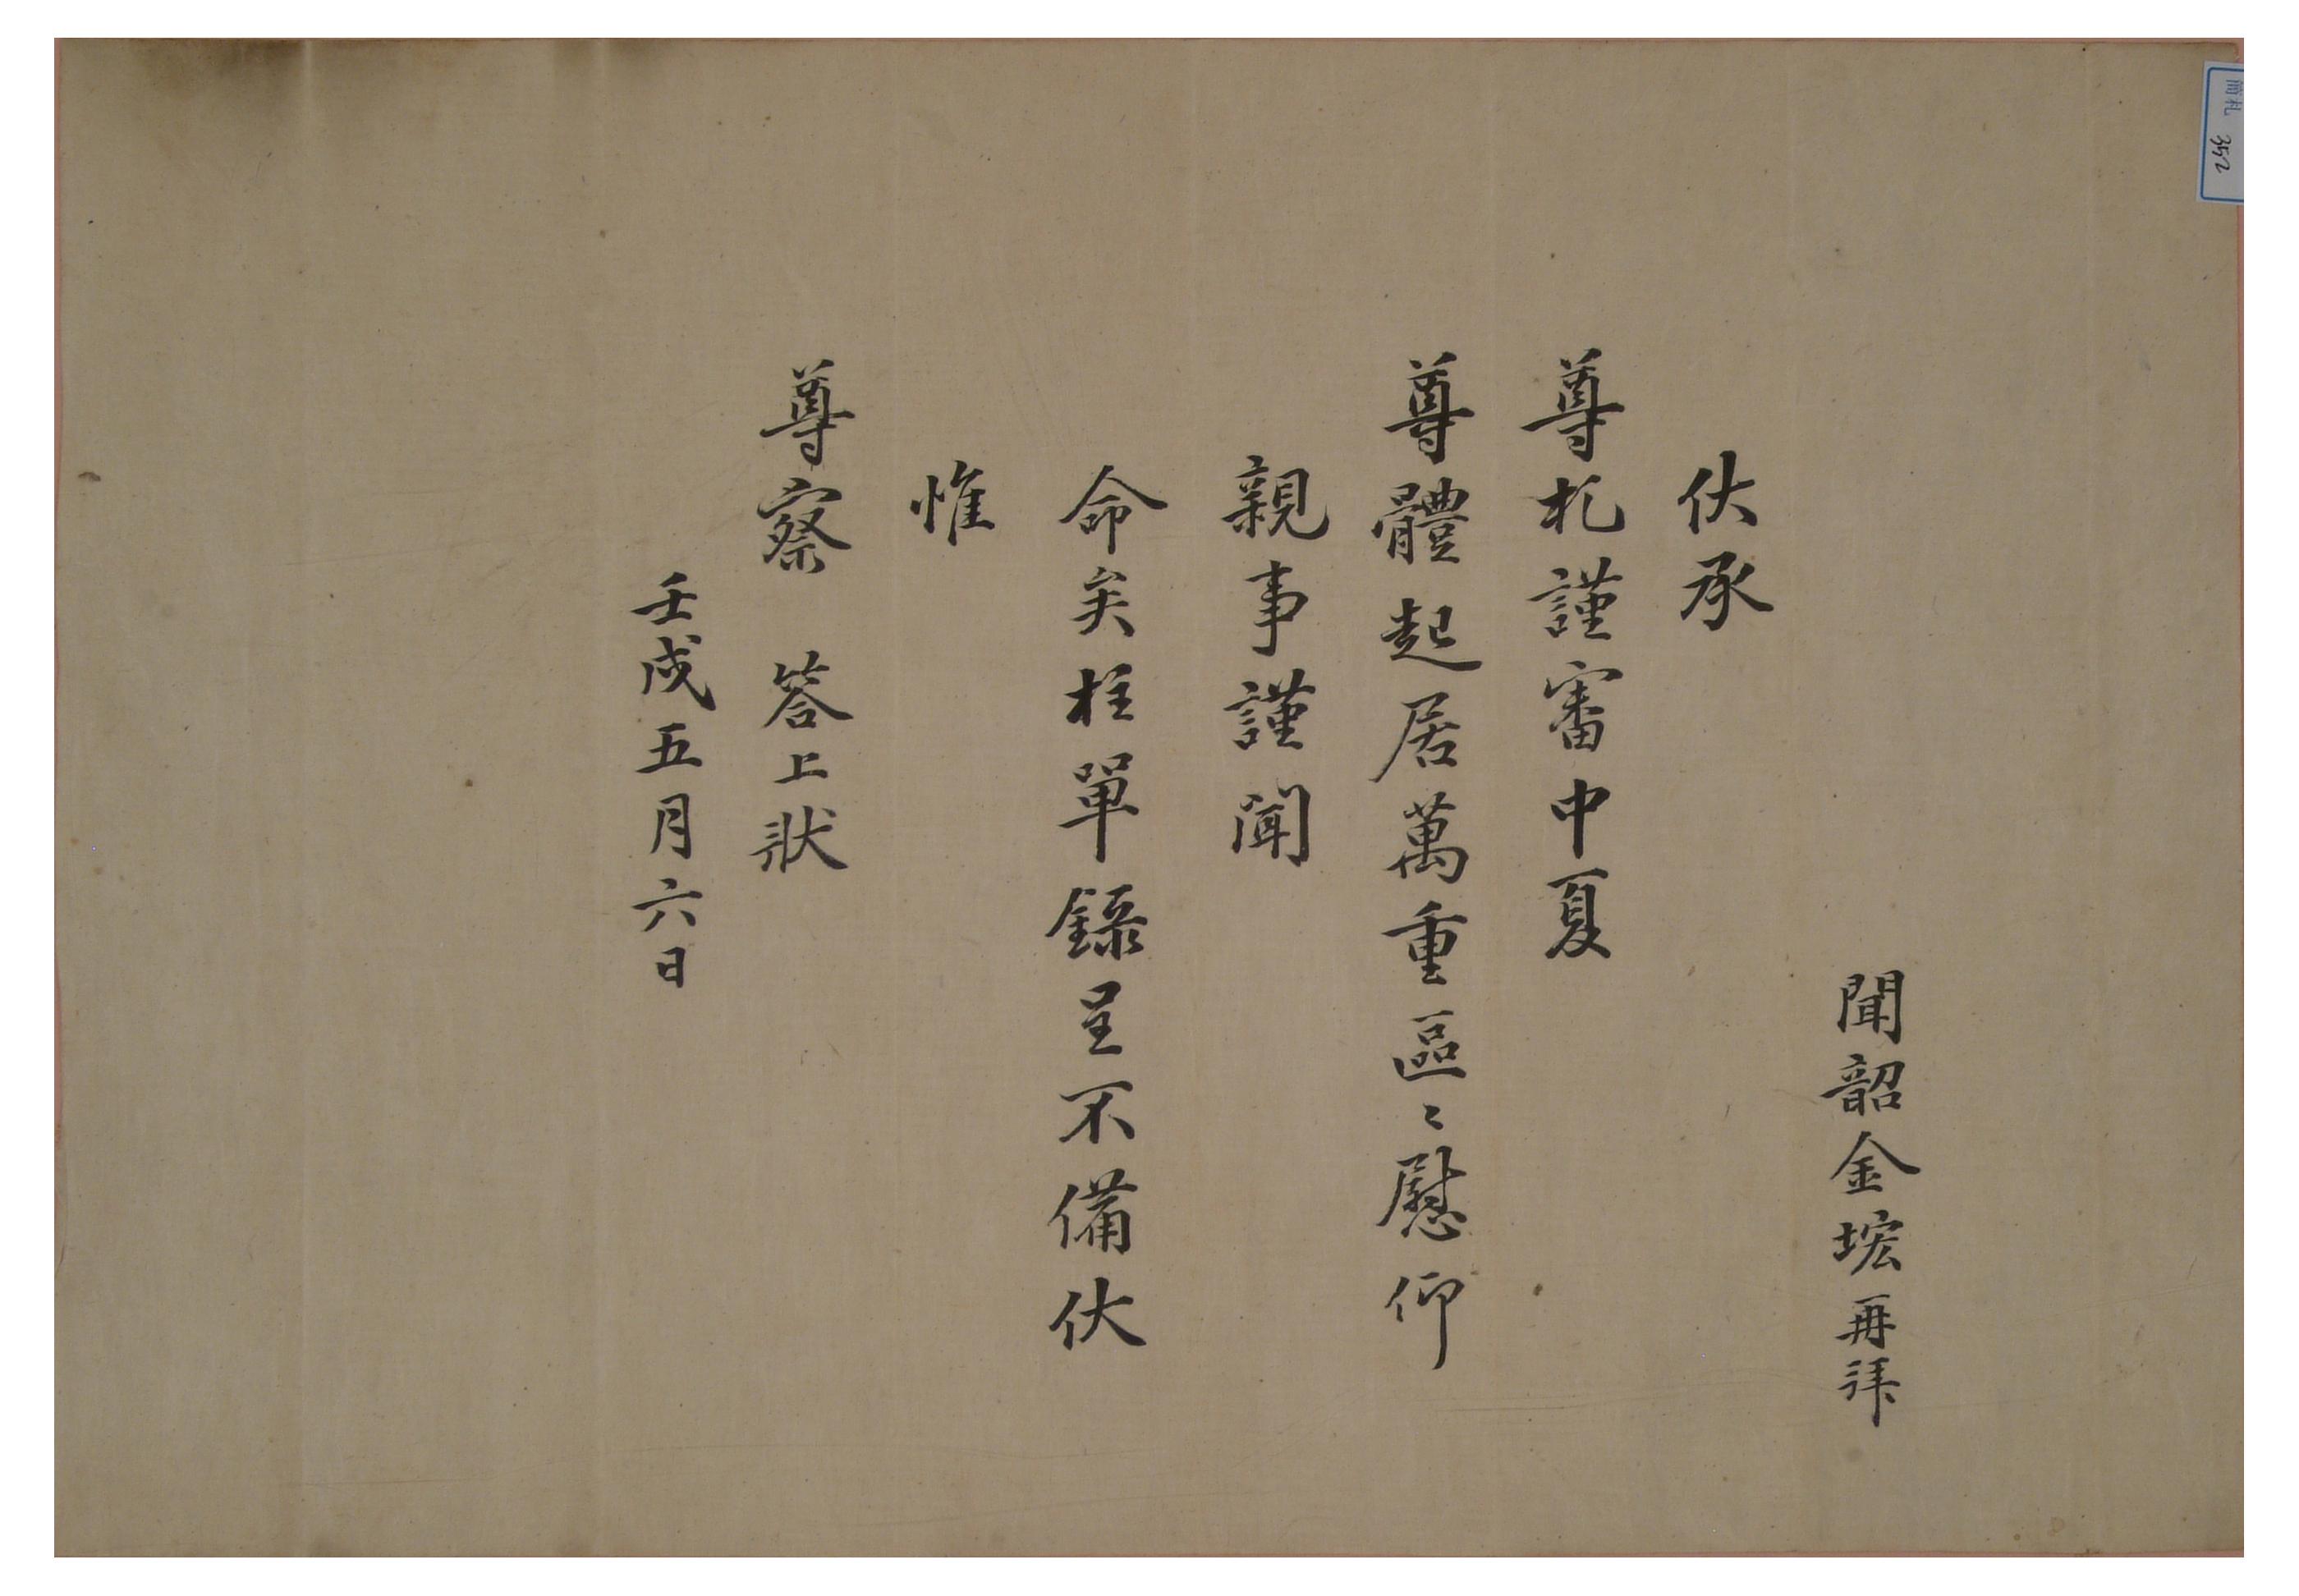 聞韶金垵再拜
伏承
尊札謹審中夏
尊體起居萬重區〻慰仰
親事謹聞
命矣柱單錄呈不備伏
惟
尊察 答上狀
壬戌五月六日
簡札 352